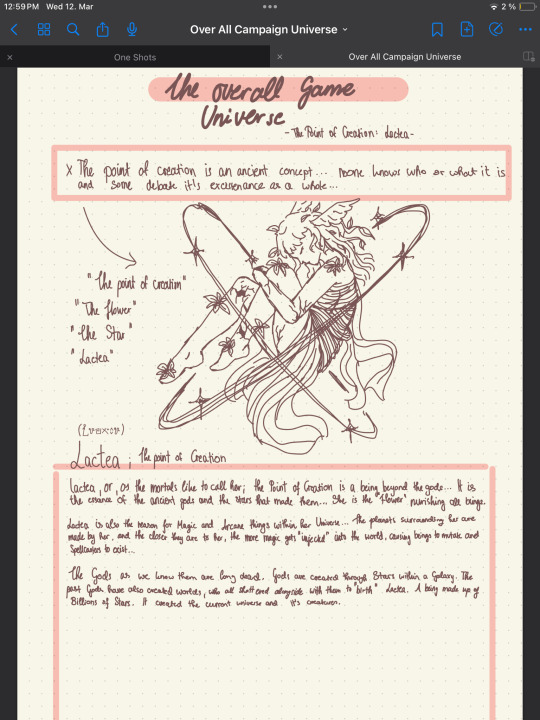 12:59 PM Wed 12. Mar
2 %
Over All Campaign Universe
One Shots
Over All Campaign Universe
The overall Game
Universe
- The Point of Creation: Lactea -
x The point of creation is an ancient concept... none knows who or what it is
and some debate it's excistenance as a whole...
"The point of creation"
"The Flower"
"The Star"
"Lactea"
Lactea ; The point of Creation
Lactea, or, as the mortals like to call her; the Point of Creation is a being beyond the gods... It is
the essence of the ancient gods and the stars that made them... She is the "Flower" nurishing all beings.
Lactea is also the reason for Magic and Arcane things within her Universe... The planets surrounding her are
made by her, and the closer they are to her, the more magic gets "injected" into the world, causing beings to mutate and
Spellcasters to exist...
The Gods as we know them are long dead. Gods are created through Stars within a Galaxy. The
past Gods have also created worlds, who all shattered alongside with them to "birth" Lactea. A being made up of
Billions of Stars. It created the current universe and it's creatures.